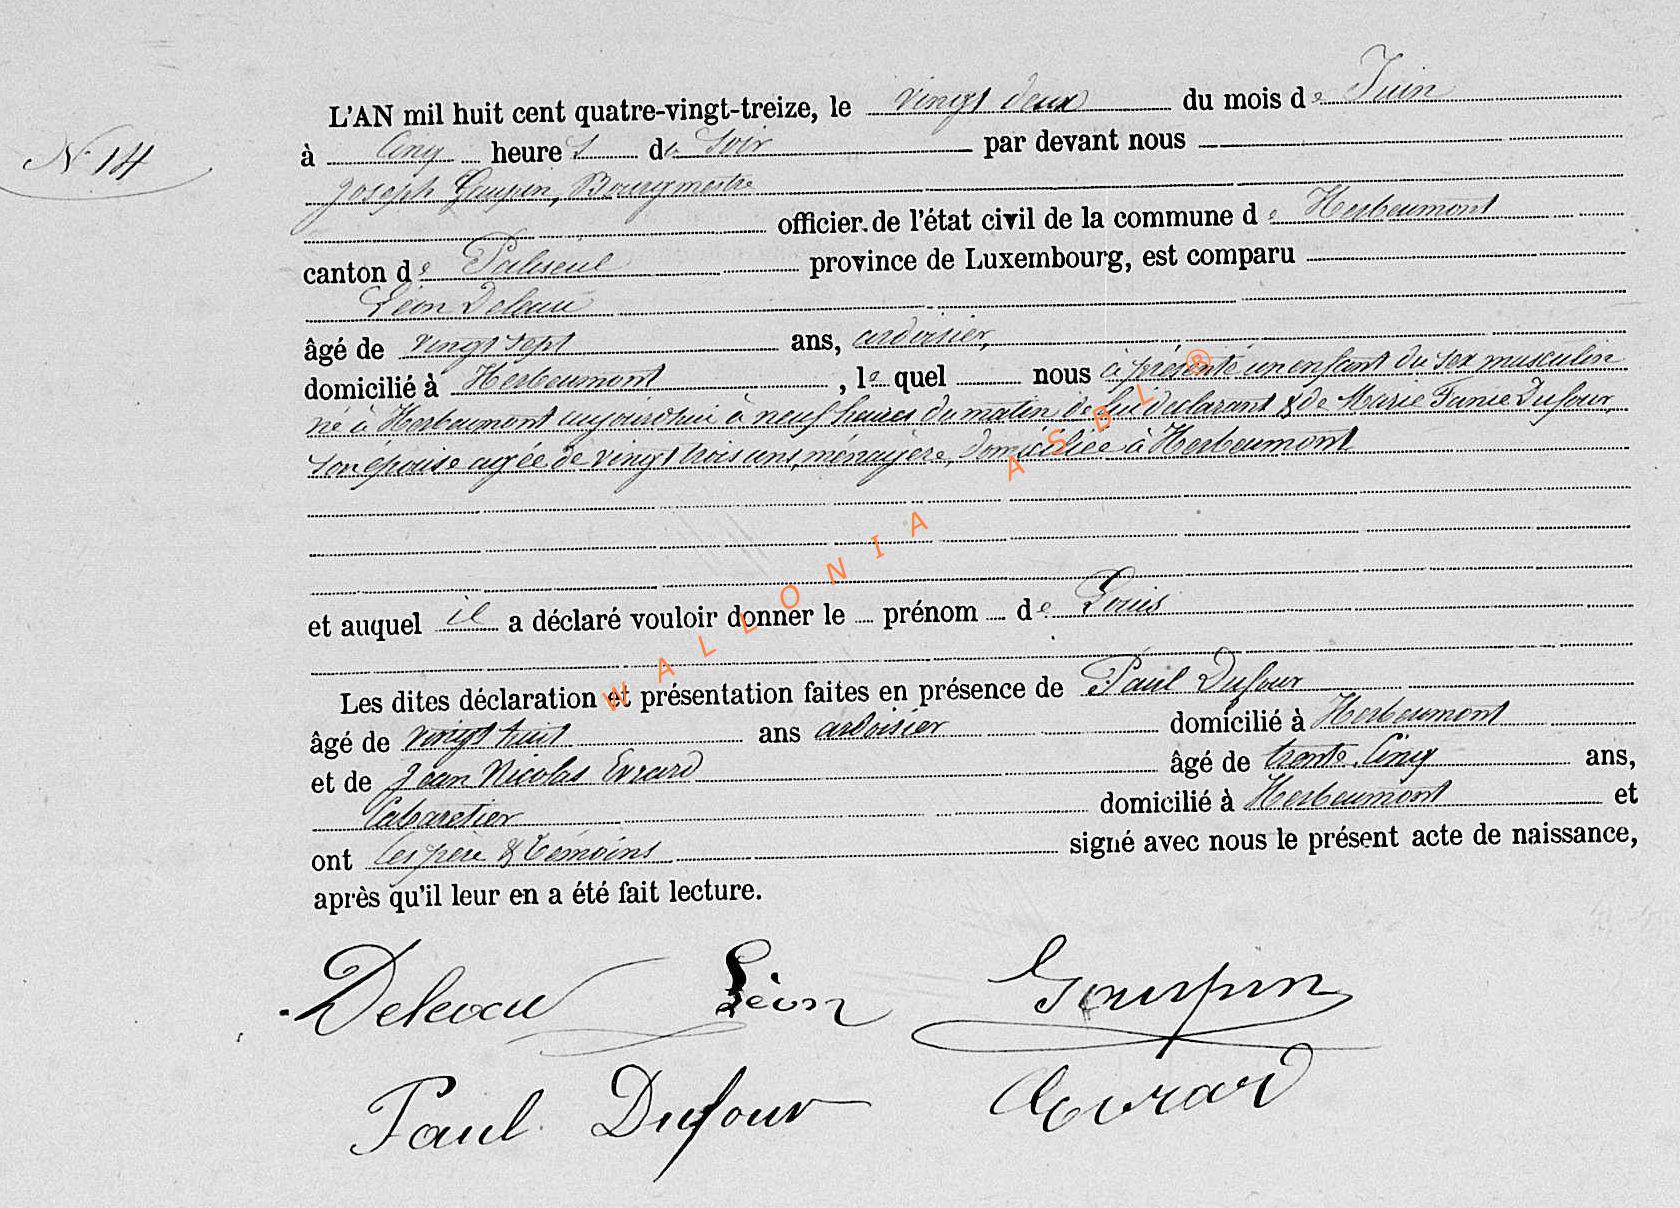 L'AN mil huit cent quatre-vingt-treize, le vingt deux du mois de Juin
N° 14
à Cinq heures du Soir par devant nous
Joseph Goupin, Bourgmestre
officier de l'état civil de la commune de Herbeumont
canton de Paliseul province de Luxembourg, est comparu
Léon Deleau
âgé de vingt sept ans, ardoisier,
domicilié à Herbeumont, le quel nous a présenté un enfant du sex musculin
né à Herbeumont aujourdhui à neuf heures du matin de lui déclarant & de Marie Fanie Dufour,
son épouse agée de vingt trois ans, ménagère, domiciliée à Herbeumont
WALLONIA ASBL ®
et auquel il a déclaré vouloir donner le prénom de Louis
Les dites déclaration et présentation faites en présence de Paul Dufour
âgé de vingt huit ans ardoisier domicilié à Herbeumont
et de Jean Nicolas Evrard âgé de trente Cinq ans,
Cabaretier domicilié à Herbeumont et
ont les père & témoins signé avec nous le présent acte de naissance,
après qu'il leur en a été fait lecture.
Deleau Léon Goupin
Paul Dufour Evrard